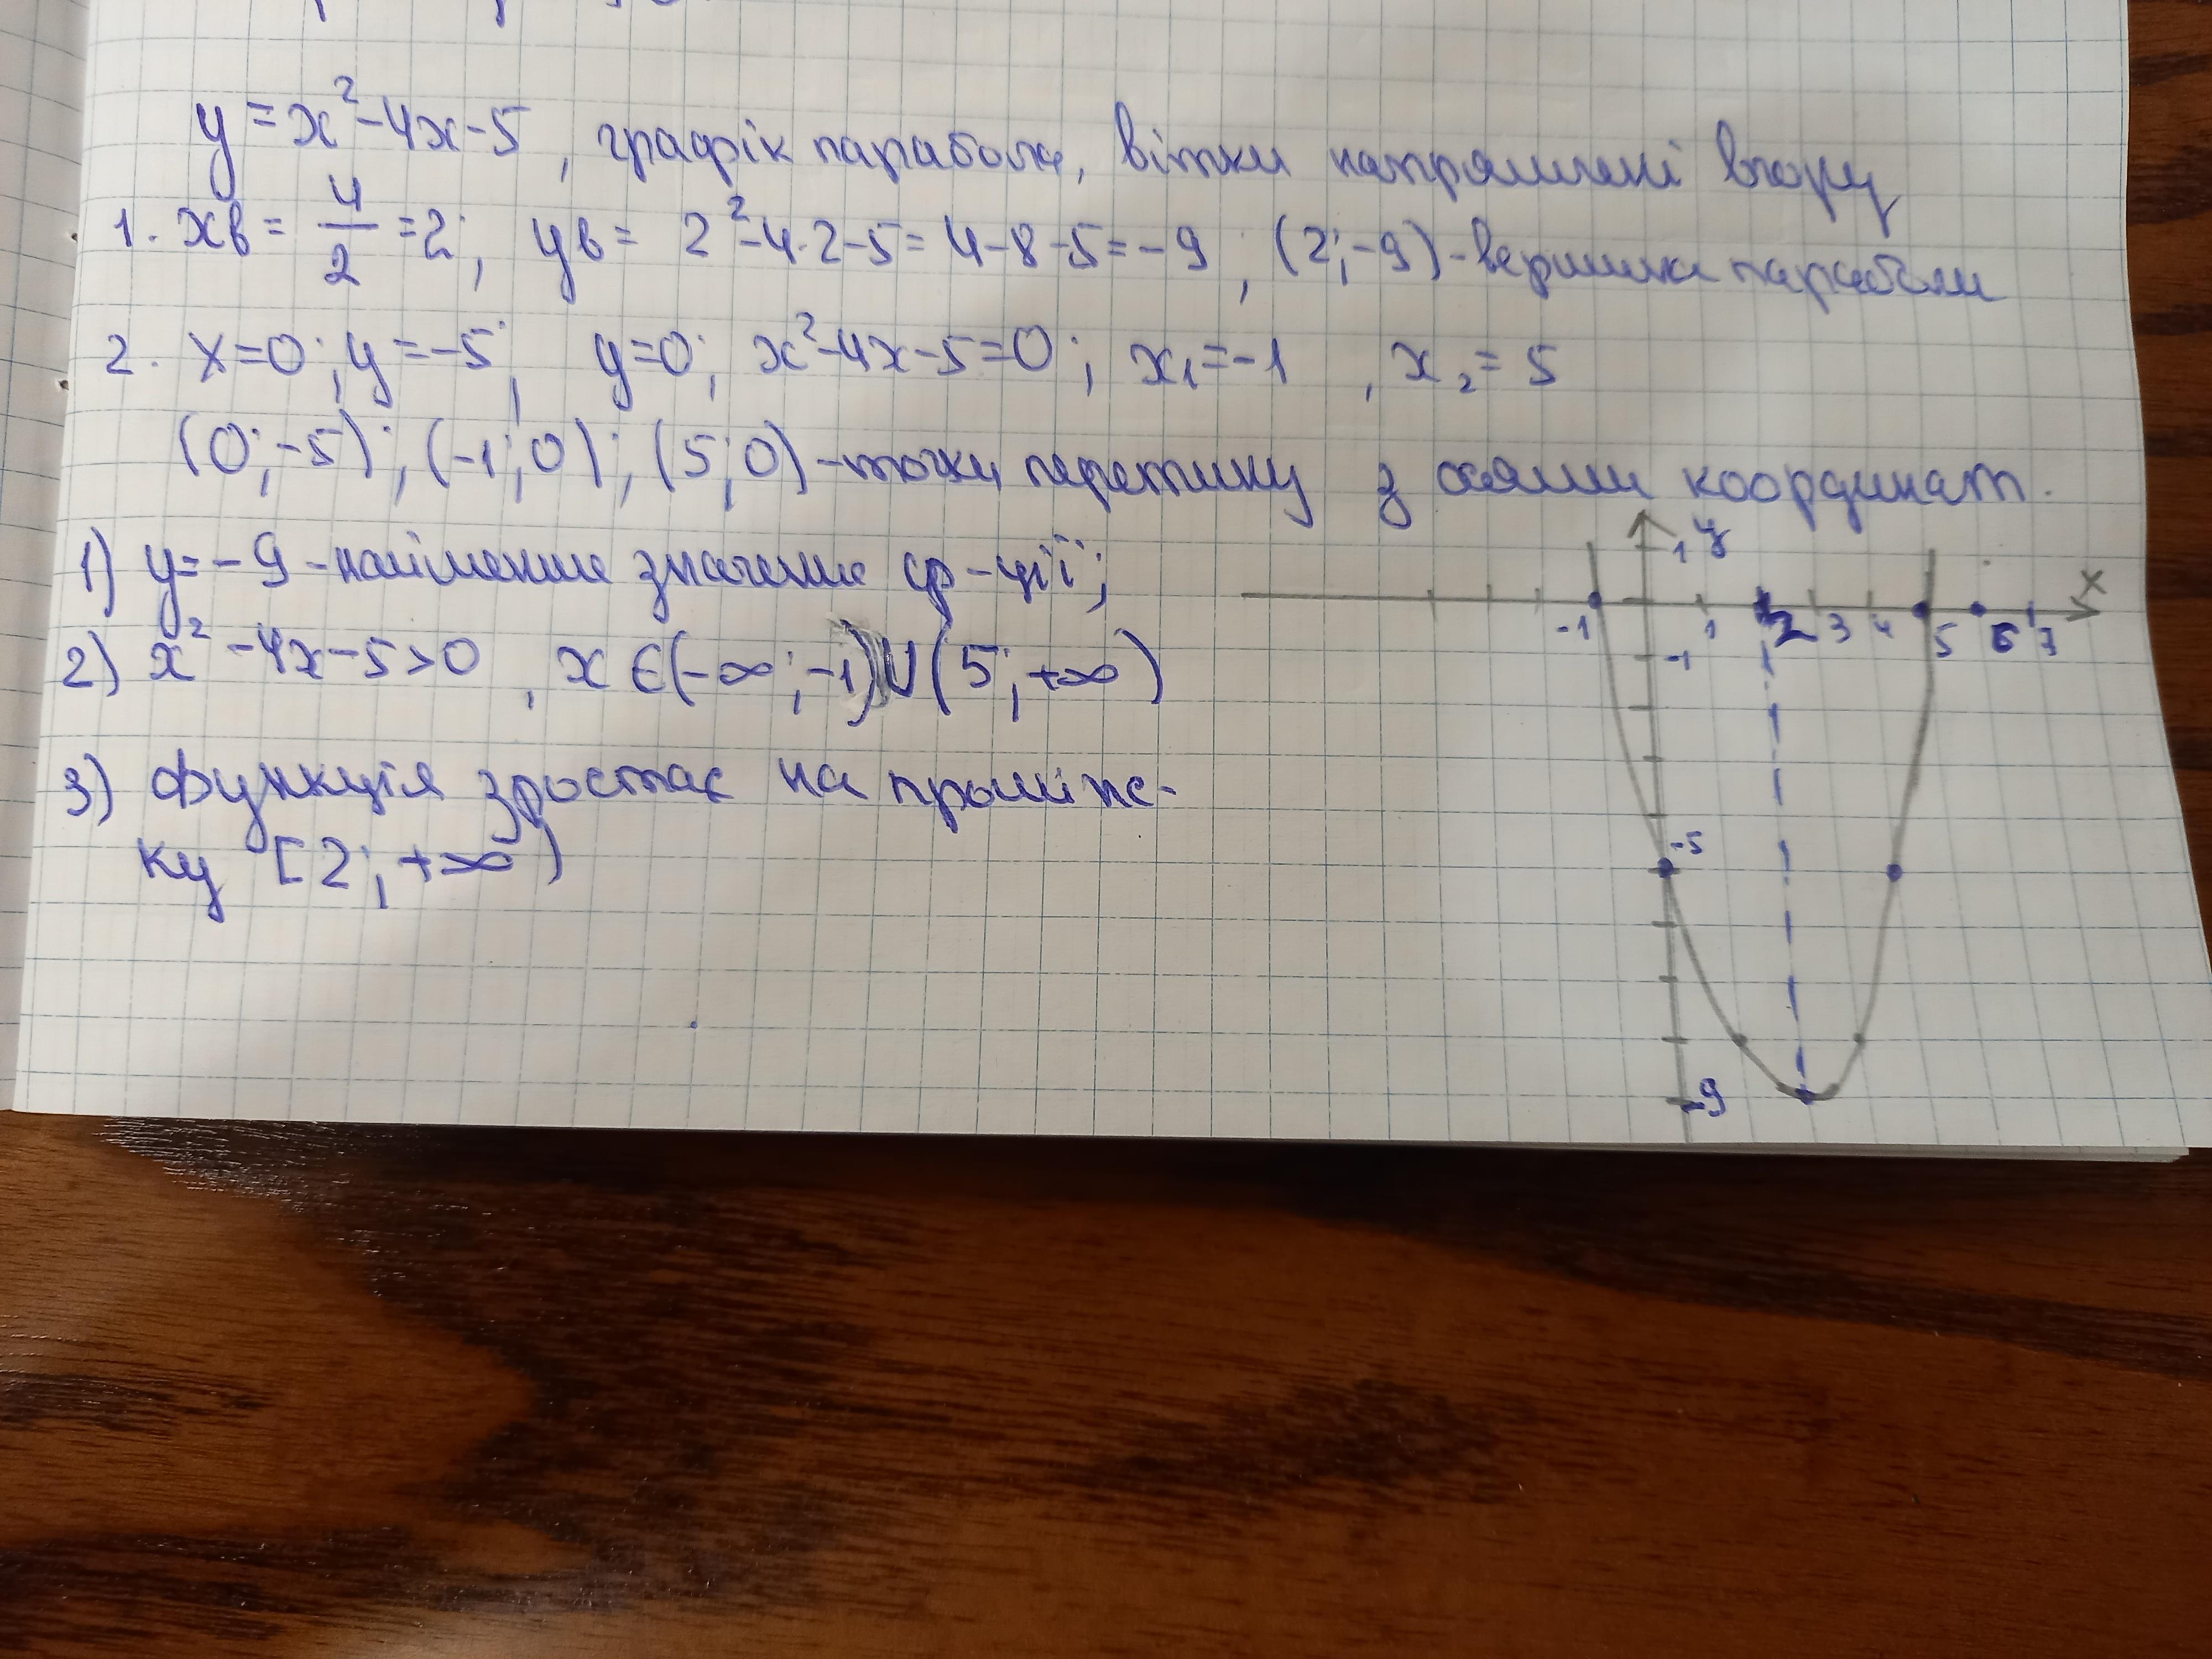 y = x² - 4x - 5, графік парабола, вітки напрямлені вгору
1. xв = 4/2 = 2; yв = 2² - 4·2 - 5 = 4 - 8 - 5 = -9; (2; -9) - вершина параболи
2. x = 0; y = -5; y = 0; x² - 4x - 5 = 0; x₁ = -1, x₂ = 5
(0; -5); (-1; 0); (5; 0) - точки перетину з осями координат.
1) y = -9 - найменше значення ф-ції;
2) x² - 4x - 5 > 0, x ∈ (-∞; -1) ∪ (5; +∞)
3) Функція зростає на проміж-
ку [2; +∞)
1 y
x
-1 1 2 3 4 5 6 7
-1
-5
-9